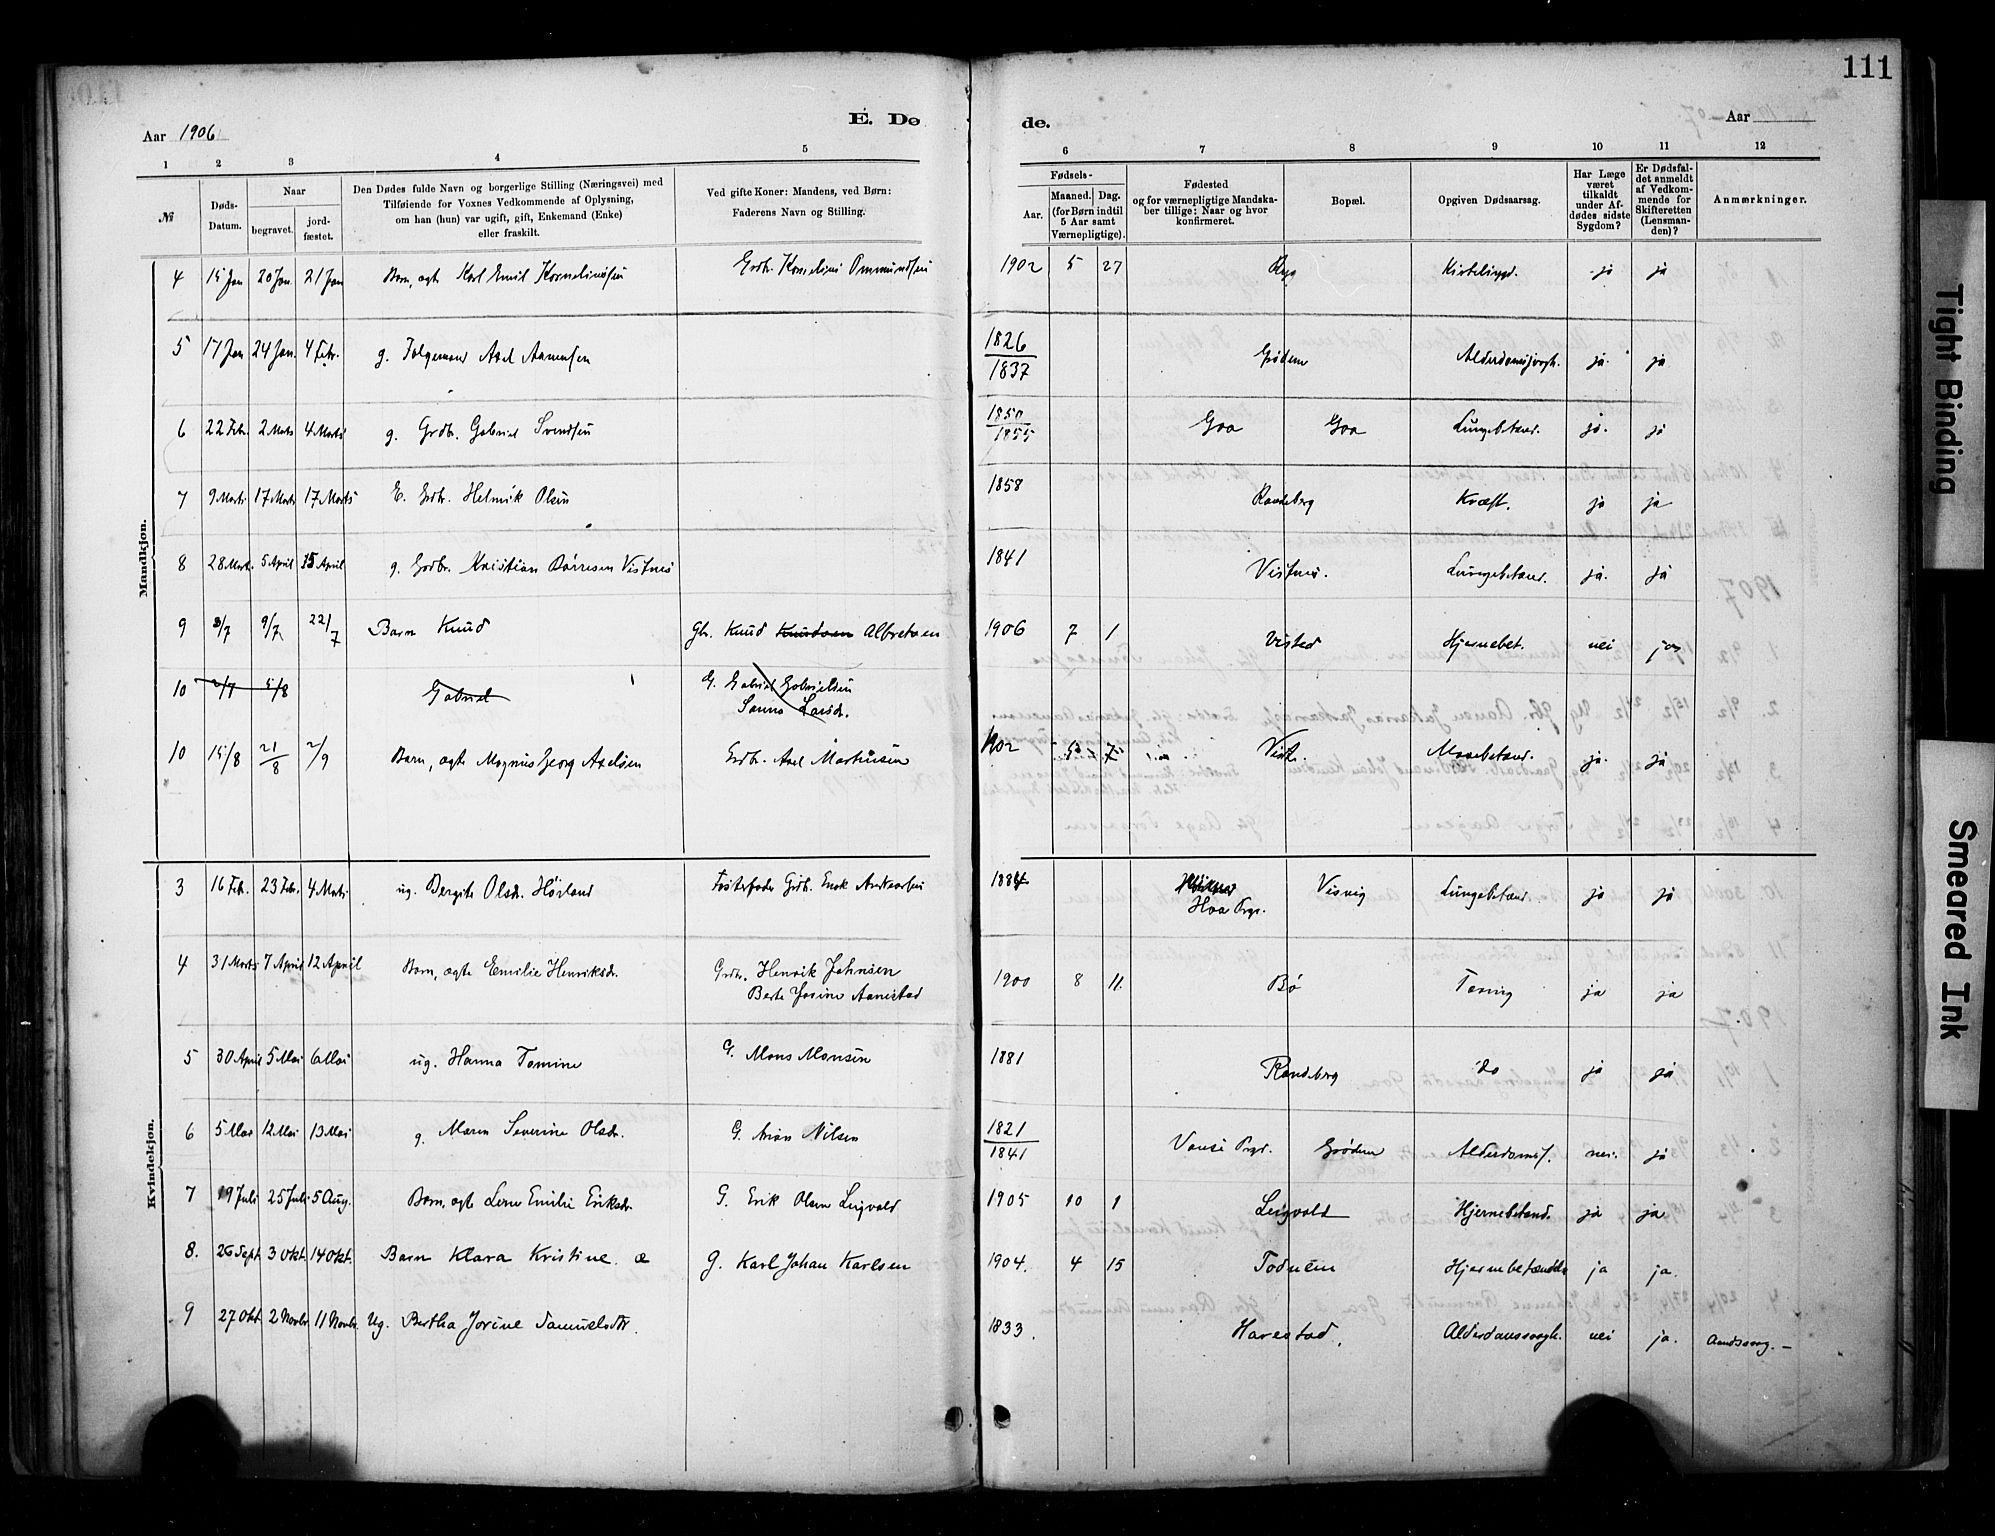 111
Aar 1906
E. Dø
de.
Aar
1 2 3 4 5 6 7 8 9 10 11 12
№
Døds-Datum.
Naar
begravet.
jordfæstet.
Den Dødes fulde Navn og borgerlige Stilling (Næringsvei) med Tilføiende for Voxnes Vedkommende af Oplysning, om han (hun) var ugift, gift, Enkemand (Enke) eller fraskilt.
Ved gifte Koner: Mandens, ved Børn: Faderens Navn og Stilling.
Fødsels-
Aar.
Maaned. Dag.
(for Børn indtil 5 Aar samt Værnepligtige).
Fødested og for værnepligtige Mandskaber tillige: Naar og hvor konfirmeret.
Bopæl.
Opgiven Dødsaarsag.
Har Læge været tilkaldt under Afdødes sidste Sygdom?
Er Dødsfaldet anmeldt af Vedkommende for Skifteretten (Lensmanden)?
Anmærkninger.
Mandkjøn.
4 15 Jan 20 Jan. 21 Jan Barn, ægte Karl Emil Korneliussen Grdbr. Kornelius Ommundsen 1902 5 27 Ryg ja ja
5 17 Jan 24 Jan. 4 Febr. g. Axel Aanensen 1826/1837 Grødem ja. ja
6 22 Febr. 2 Marts 4 Marts g. Grdbr. Gabriel Svendsen 1850/1855 Goa Goa Lungebetænd. ja. ja
7 9 Marts 17 Marts 17 Marts E. Grdbr. Helmik Olsen 1858 Randeberg Kræft. ja ja
8 28 Mart. 5 April 15 April g. Grdbr. Kristian Børresen Vistnes 1841 Vistnes. Lungebetænd. ja. ja
9 3/7 9/7 22/7 Barn Knud Gbr. Knud Knudsen Albretsen 1906 7 1 Visted Hjernebet. nei ja
10 5/8 Gabriel G. Gabriel Gabrielsen
Sanna Larsdr.
10 15/8 21/8 2/9 Barn, ægte Magnus Georg Axelsen Grdbr. Axel Martinsen 1902 5 7 Viste. ja. ja
Kvindekjøn.
3 16 Feb. 23 Febr. 4 Marts ug. Bergite Olsdr. Hörland Fosterfader Grdb. Enok Andreassen 1884 Hoa Prgj. Visvig Lungebetænd. ja ja
4 31 Marts 7 April 12 April Barn, ægte Emilie Henriksdr. Grdbr. Henrik Johnsen
Berte Josine Aanestad 1900 8 11. Bø Tæring ja ja
5 30 April 5 Mai 6 Mai ug. Hanna Tomine G. Mons Monsen 1881 Randeberg do ja ja
6 5 Mai 12 Mai 13 Mai g. Maren Severine Olsdr. G. Nilsen 1821/1841 Vanse Prgj. Grødem Alderdomss. nei. ja
7 19 Juli 25 Juli 5 Aug. Barn, ægte Lene Emilie Eriksdr. G. Erik Olsen Leigvold 1905 10 1 Leigvold Hjernebetænd. ja ja
8. 26 Sept. 3 Okt. 14 Okt. Barn Klara Kristine. æ G. Karl Johan Karlsen 1904. 4 15 Todnem Hjernebetændelse ja ja.
9 27 Okt 2 Novbr. 11 Novbr. Ug. Bertha Jorine Samuelsdtr. 1833. Harestad. Alderdomssvagh. nei ja.
Tight Binding
Smeared Ink